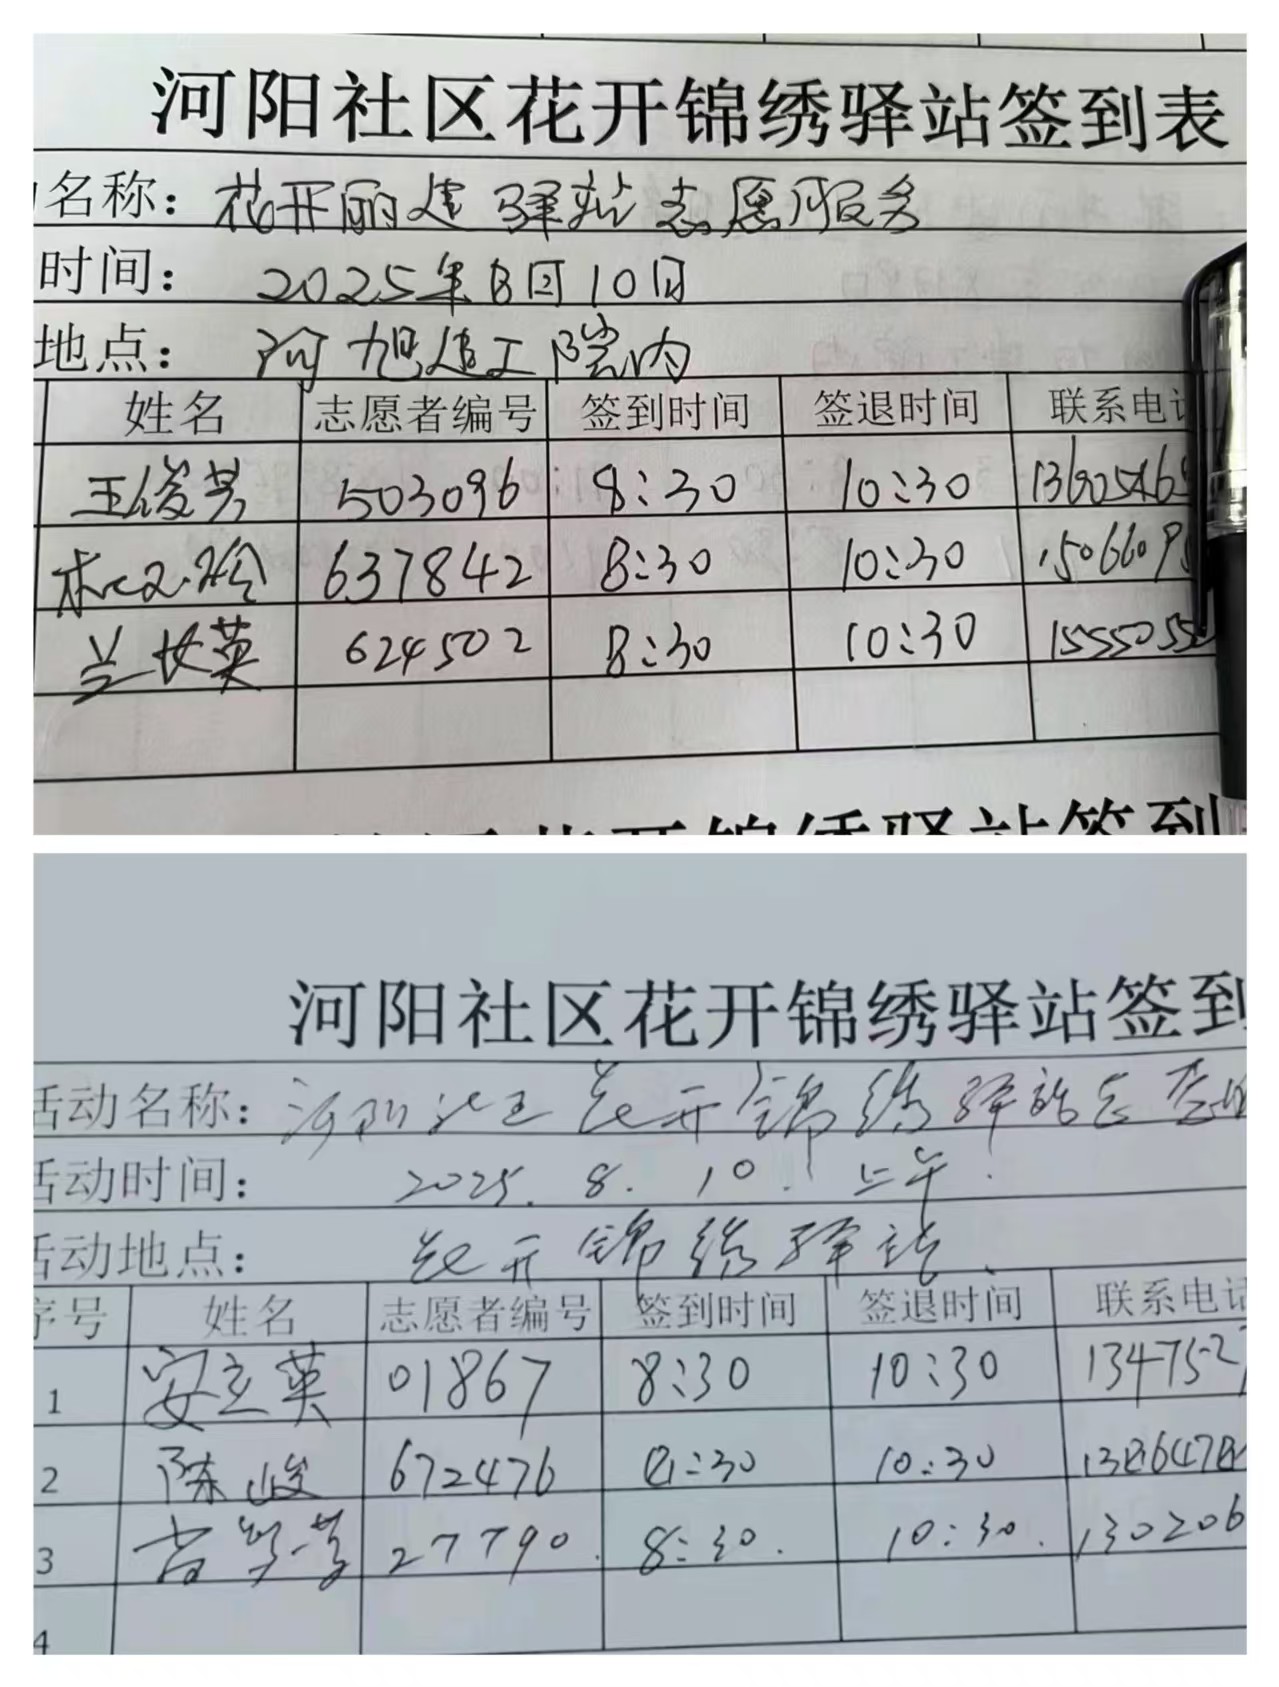 河阳社区花开锦绣驿站签到表
名称：花开丽建驿站志愿服务
时间：2025年8月10日
地点：河旭建工院内
姓名 志愿者编号 签到时间 签退时间 联系电
王俊芳 503096 8:30 10:30
637842 8:30 10:30 1506609
兰女英 624502 8:30 10:30 15550552
花开锦绣驿站签到
河阳社区花开锦绣驿站签到
活动名称：河阳社区花开锦绣驿站志愿
活动时间：2025.8.10.上午.
活动地点：花开锦绣驿站
序号 姓名 志愿者编号 签到时间 签退时间 联系电话
1 安立英 01867 8:30 10:30 1347527
2 陈峻 672476 8:30 10:30 1386478
3 27790. 8:30. 10:30. 130206
4